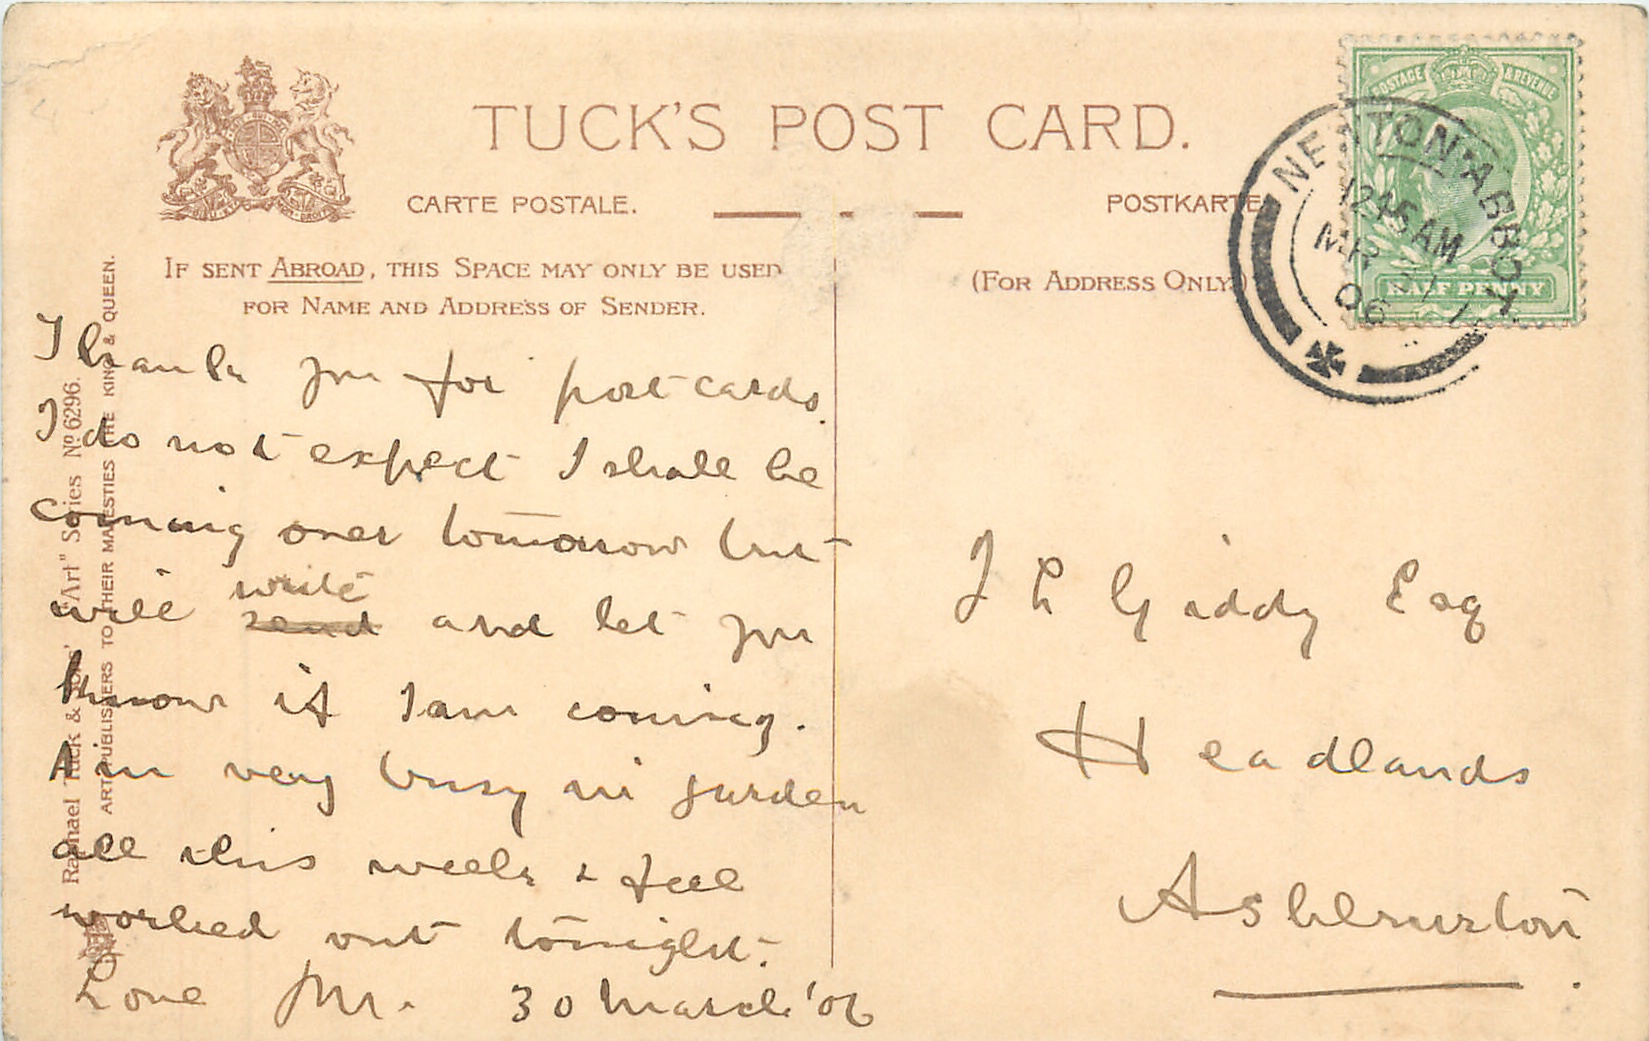 TUCK'S POST CARD.
CARTE POSTALE.
POSTKARTE
IF SENT ABROAD, THIS SPACE MAY ONLY BE USED
FOR NAME AND ADDRESS OF SENDER.
(FOR ADDRESS ONLY.)
POSTAGE & REVENUE
HALF PENNY
NEWTON-ABBOT
12 15 AM
MR 31
06
Raphael Tuck & Sons' "Art" Series No 6296.
ART PUBLISHERS TO THEIR MAJESTIES THE KING & QUEEN.
Thank you for postcards.
I do not expect I shall be
coming over tomorrow but
will send write and let you
know if I am coming.
Am very busy in garden
all this week & feel
worked out tonight.
Love 30 March '06
J L Giddy Esq
Headlands
Ashburton.